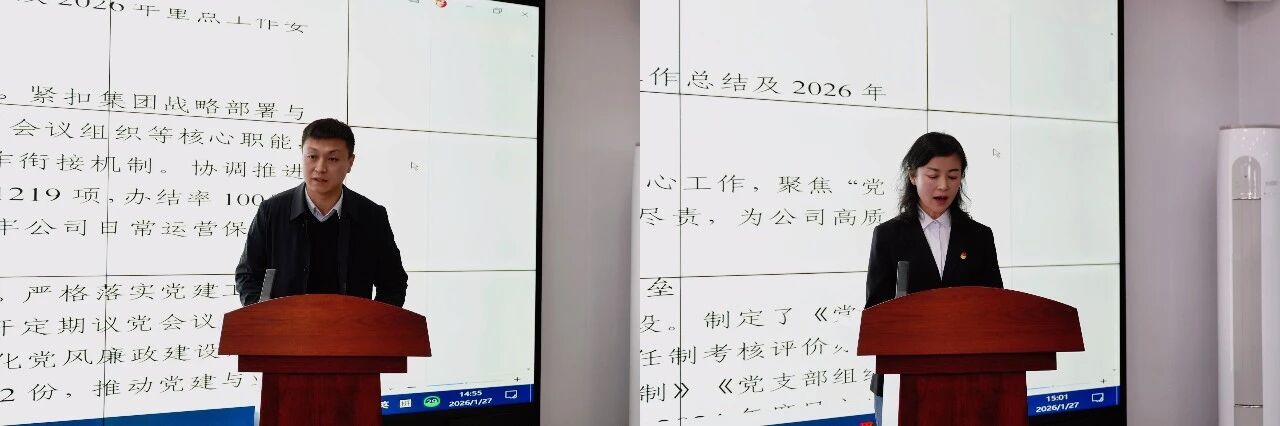 2026年重点工作安
。紧扣集团战略部署与
会议组织等核心职能
作衔接机制。协调推进
1219 项,办结率 100
牢公司日常运营保
。严格落实党建工
开定期议党会议
化党风廉政建设
2 份，推动党建与
14:55
2026/1/27
29
工作总结及 2026 年
心工作，聚焦“党
尽责，为公司高质
垒
设。制定了《党
任制考核评价
制》《党支部组织
15:01
2026/1/27